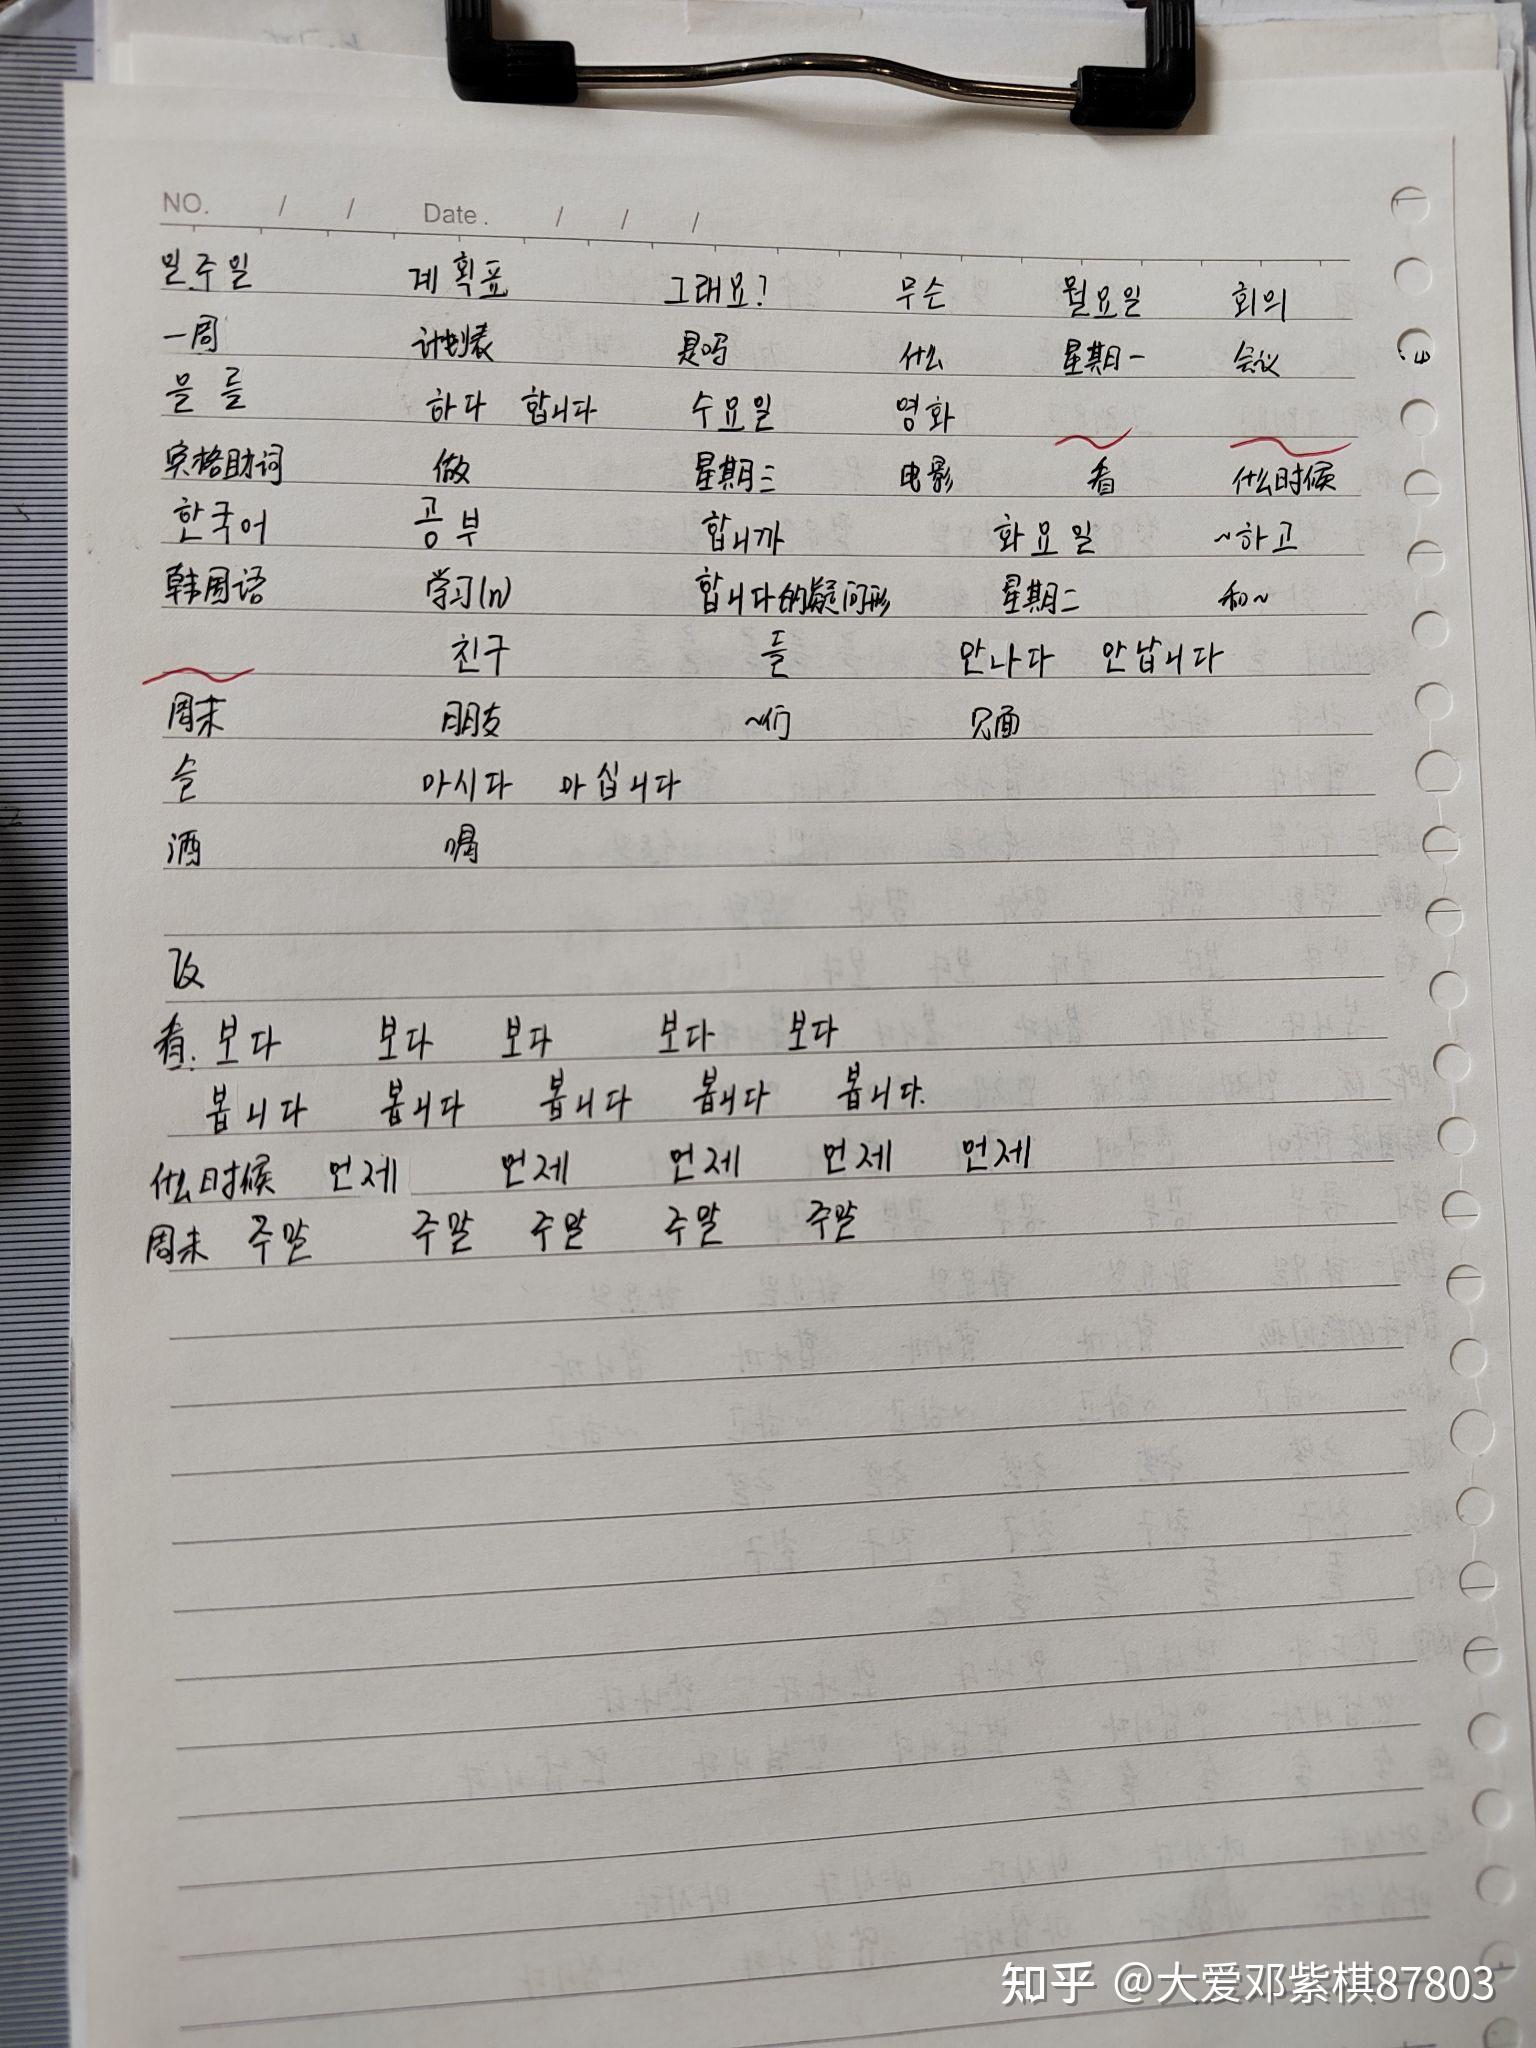 NO. / / Date. / / /
일주일 계획표 그래요? 무슨 월요일 회의
一周 计划表 是吗 什么 星期一 会议
을 를 하다 합니다 수요일 영화
宾格助词 做 星期三 电影 看 什么时候
한국어 공부 합니까 화요일 ~하고
韩国语 学习(n) 합니다的疑问形 星期二 和~
친구 들 만나다 만납니다
周末 朋友 ~们 见面
술 마시다 마십니다
酒 喝
改
看. 보다 보다 보다 보다 보다
봅니다 봅니다 봅니다 봅니다 봅니다.
什么时候 언제 언제 언제 언제 언제
周末 주말 주말 주말 주말 주말
知乎 @大爱邓紫棋87803